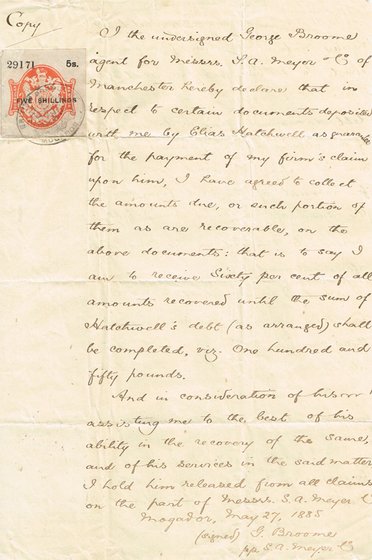 Copy
29171 5s.
FIVE SHILLINGS
I the undersigned George Broome
agent for Messrs. S. A. Meyer & Co of
Manchester hereby declare that in
respect to certain documents deposited
with me by Elias Hatchwell as guarantee
for the payment of my firm's claim
upon him, I have agreed to collect
the amounts due, or such portion of
them as are recoverable, on the
above documents: that is to say I
am to receive Sixty per cent of all
amounts recovered until the sum of
Hatchwell's debt (as arranged) shall
be completed, viz. One hundred and
fifty pounds.
And in consideration of his
assisting me to the best of his
ability in the recovery of the same,
and of his services in the said matter
I hold him released from all claims
on the part of Messrs. S. A. Meyer & Co
Mogador, May 27, 1885
(signed) G. Broome
p.p. S. A. Meyer & Co